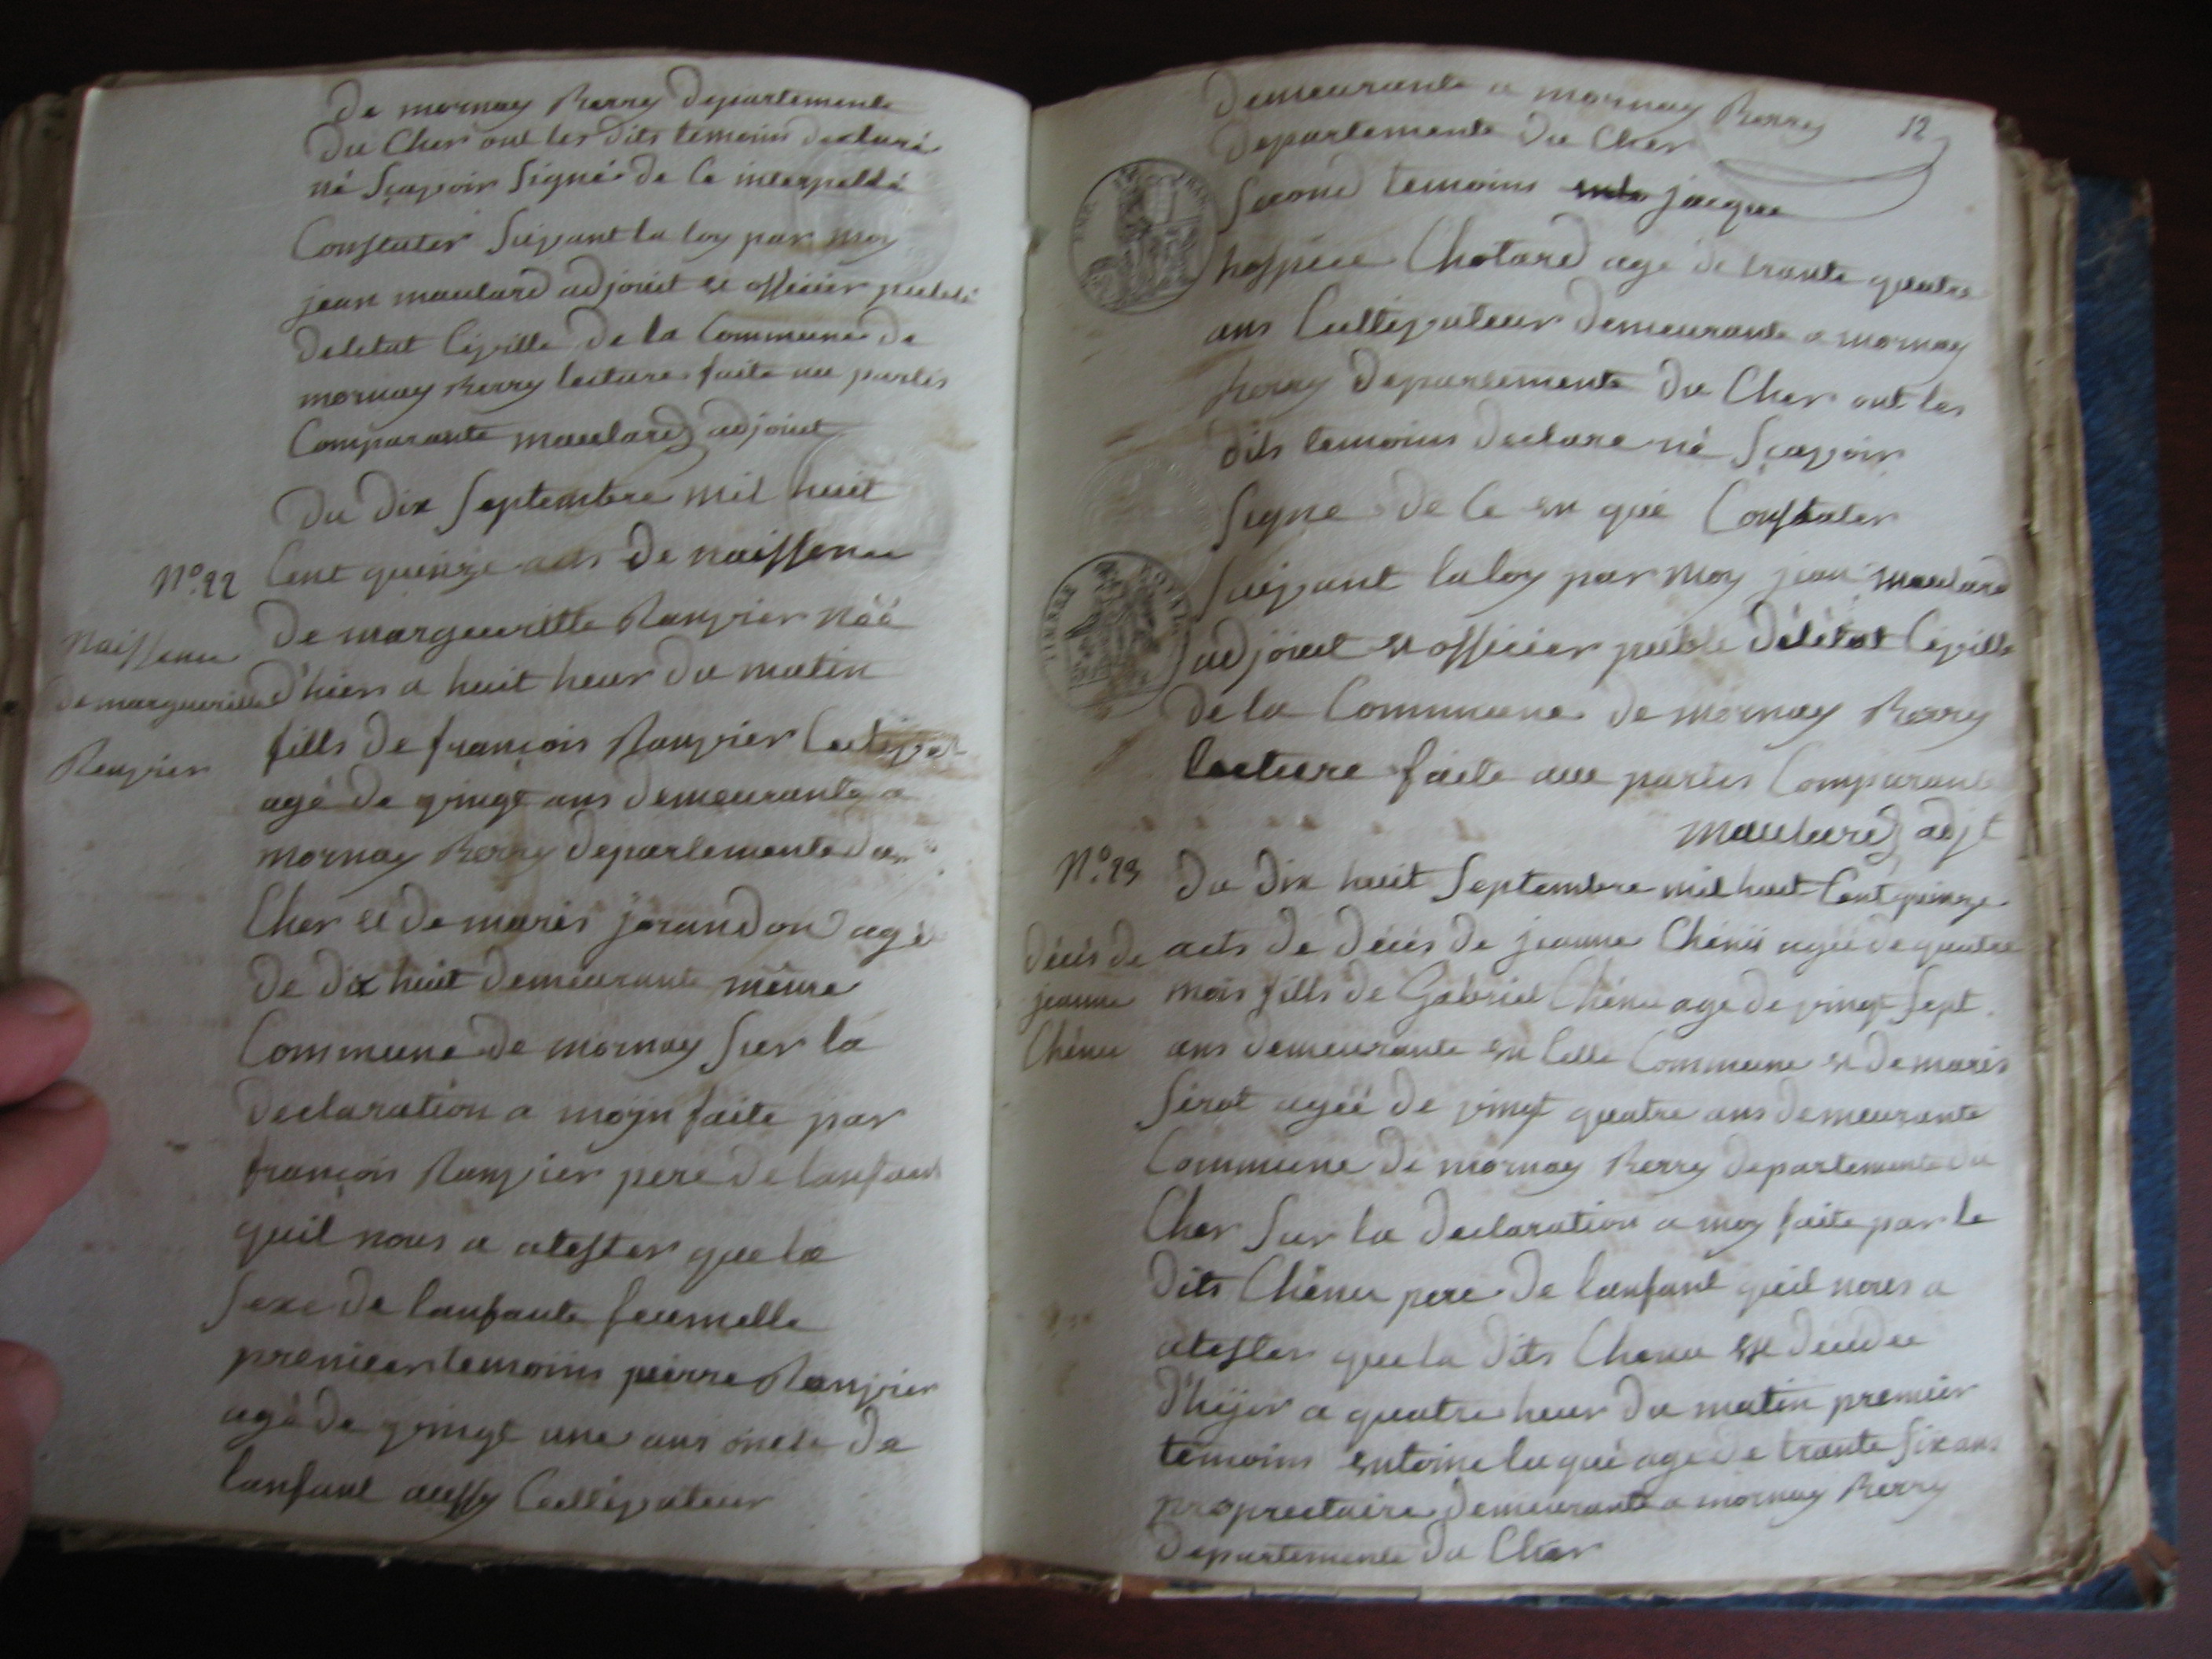 de mornay Berry departemente
du Cher ont les dits temoins declaré
né sçavoir signé de ce interpellé
Constater suivant la loy par moy
jean maulard adjouit et officier publé
deletat Civille de la Commune de
mornay Berry lecture faite au partis
Comparante maulard adjouit
du dix septembre mil huit
N°.22
Cent quinze acts de naissence
Naissence
de margueritte
Rauvier
de marguerritte Rauvier néé
d'hier a huit heur du matin
fills de françois Rauvier Cultivat
agé de vingt ans demeurante a
mornay Berry departemente du
Cher et de marie jorandon agé
de dix huit demeurante même
Commune de mornay sur la
declaration a moyn faite par
françois Rauvier pere de lanfant
quil nous a atester que la
sexe de lanfante feumelle
premieer temoiins peirre Rauvier
agé de vingt une ans oncle de
lanfant aussy Cultivateur
12
demeurante a mornay Berry
departemente du Cher
second temoins jacque
hospice Chotard agé de trante quatre
ans Cultivateur demeurante a mornay
berry departemente du Cher ont les
dits temoins declare né sçavoir
signe de ce en qué Constater
suivant la loy par moy jean maulard
adjouit et officier puble délétat Civille
de la Commune de mornay Berry
lecture faite aue partis Comparante
maulard adjt
N°.23
décés de
jeanne
Chénu
du dix huit septembre mil huit Cent quinze
acts de décés de jeanne Chénu agéé de quatre
mois fills de Gabriel Chénu age de vingt sept
ans demeurante en Celle Commune et de marie
sirot agéé de vingt quatre ans demeurante
Commune de mornay Berry departemente du
Cher sur la declaration a moy faite par le
dits Chénu pere de lanfant quil nous a
atester que la dits Chenu et decedee
d'hijer a quatre heur du matin premier
temoins entoine luqué age de trante six ans
proprietaire demeurante a mornay Berry
departemente du Cher
TIMBRE ROYAL